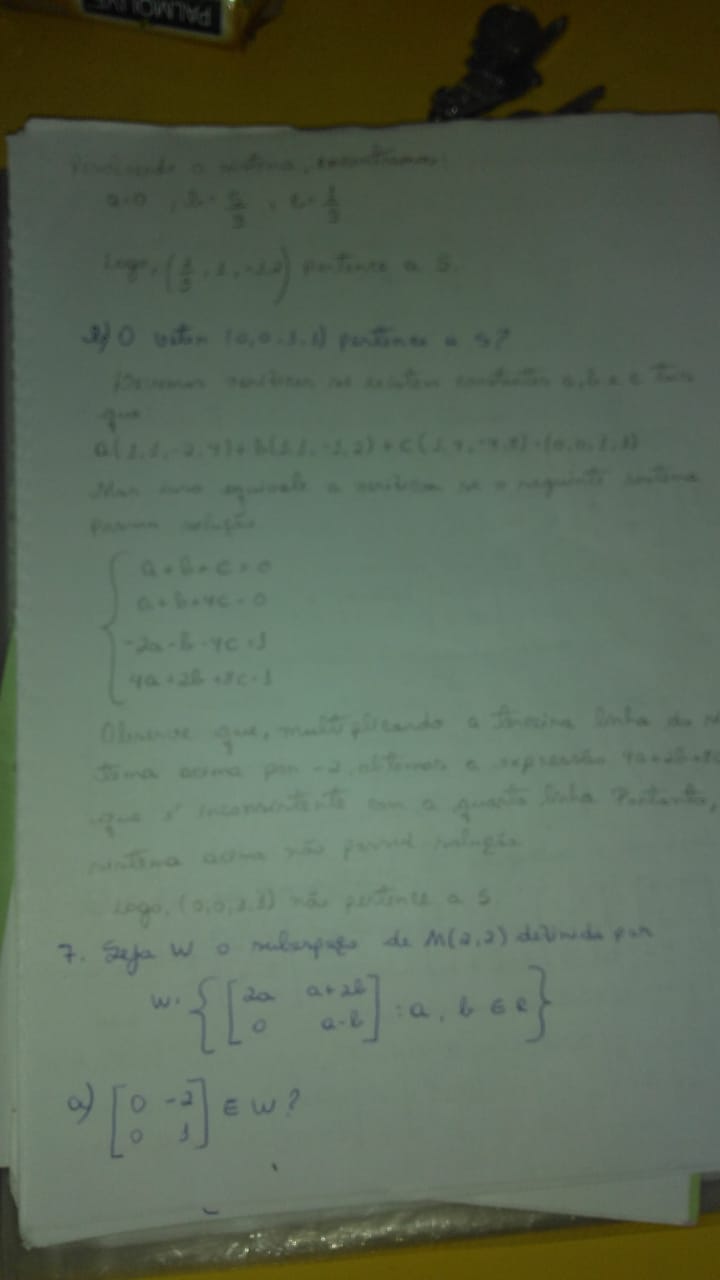 PALMOLIVE
Resolvendo o sistema, encontramos:
a=0 , b= , c= 1/3
Logo, ( , 1, -1, 2) pertence a S.
b) O vetor (0,0,1,1) pertence a S?
Devemos verificar se existem constantes a, b e c tais
que
a(1,1,-2,4)+b(1,1,-1,2)+c(1,4,-4,8)=(0,0,1,1)
Mas isso equivale a verificar se o seguinte sistema
possui solução
a+b+c=0
a+b+4c=0
-2a-b-4c=1
4a+2b+8c=1
Observe que, multiplicando a terceira linha do sis
tema acima por -2, obtemos a expressão 4a+2b+8c
que é inconsistente com a quarta linha. Portanto,
sistema acima não possui solução.
Logo, (0,0,1,1) não pertence a S
7. Seja W o subespaço de M(2,2) definido por
W= { [ 2a a+2b
0 a-b ] : a, b ∈ R }
a) [ 0 -2
0 1 ] ∈ W?